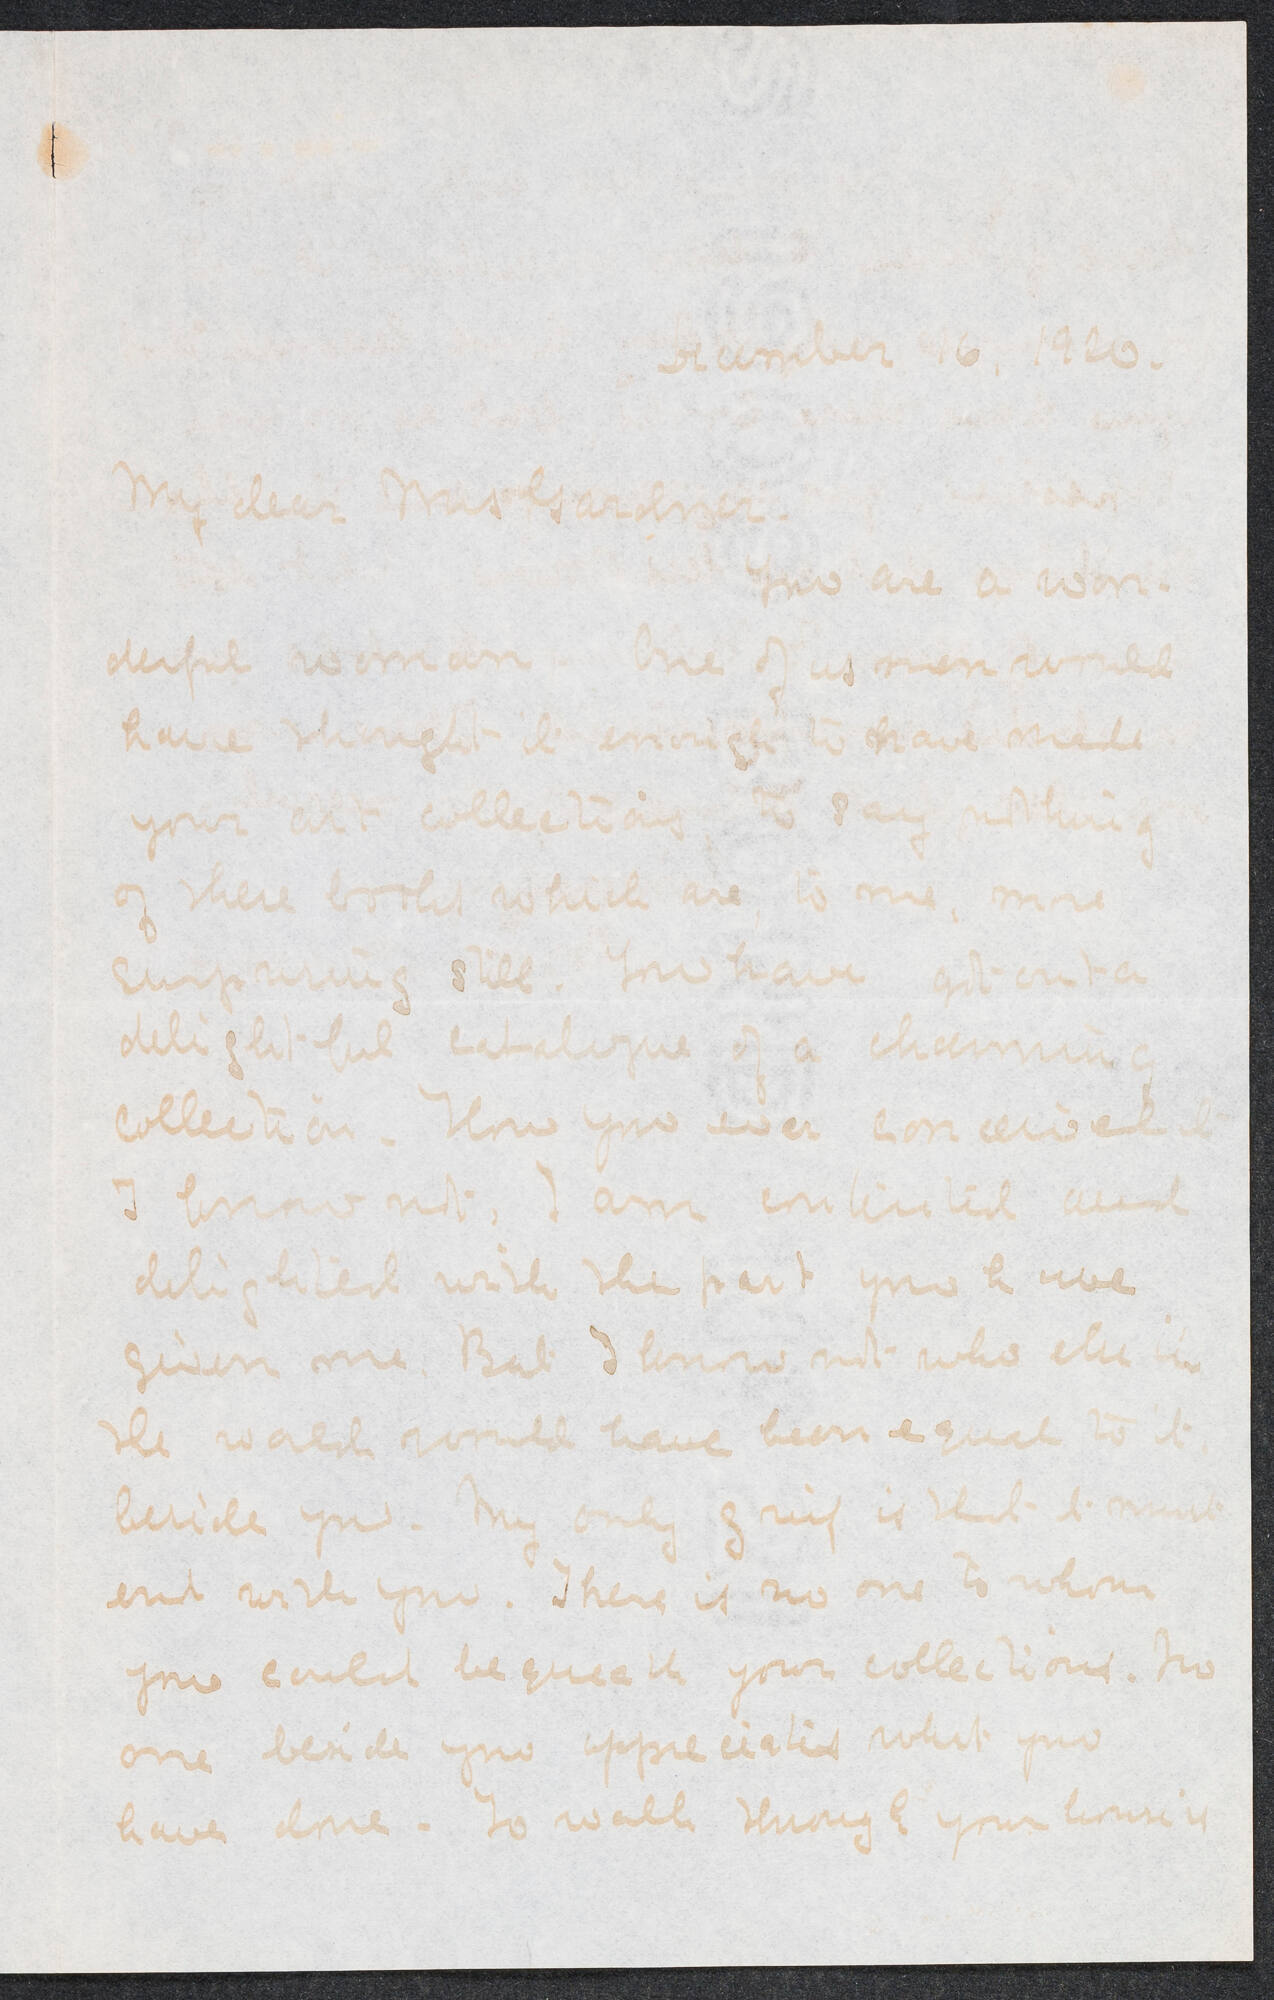 December 16, 1920.
My dear Mrs Gardner.
You are a won-
derful woman. One of us men would
have thought it enough to have made
your art collections to say nothing
of these books which are, to me, more
surprising still. You have got out a
delightful catalogue of a charming
collection. How you ever conceived it
I know not, I am contented and
delighted with the part you have
given me. But I know not who else in
the world would have been equal to it,
beside you. My only grief is that it must
end with you. There is no one to whom
you could bequeath your collections. No
one beside you appreciates what you
have done. To walk through your house is